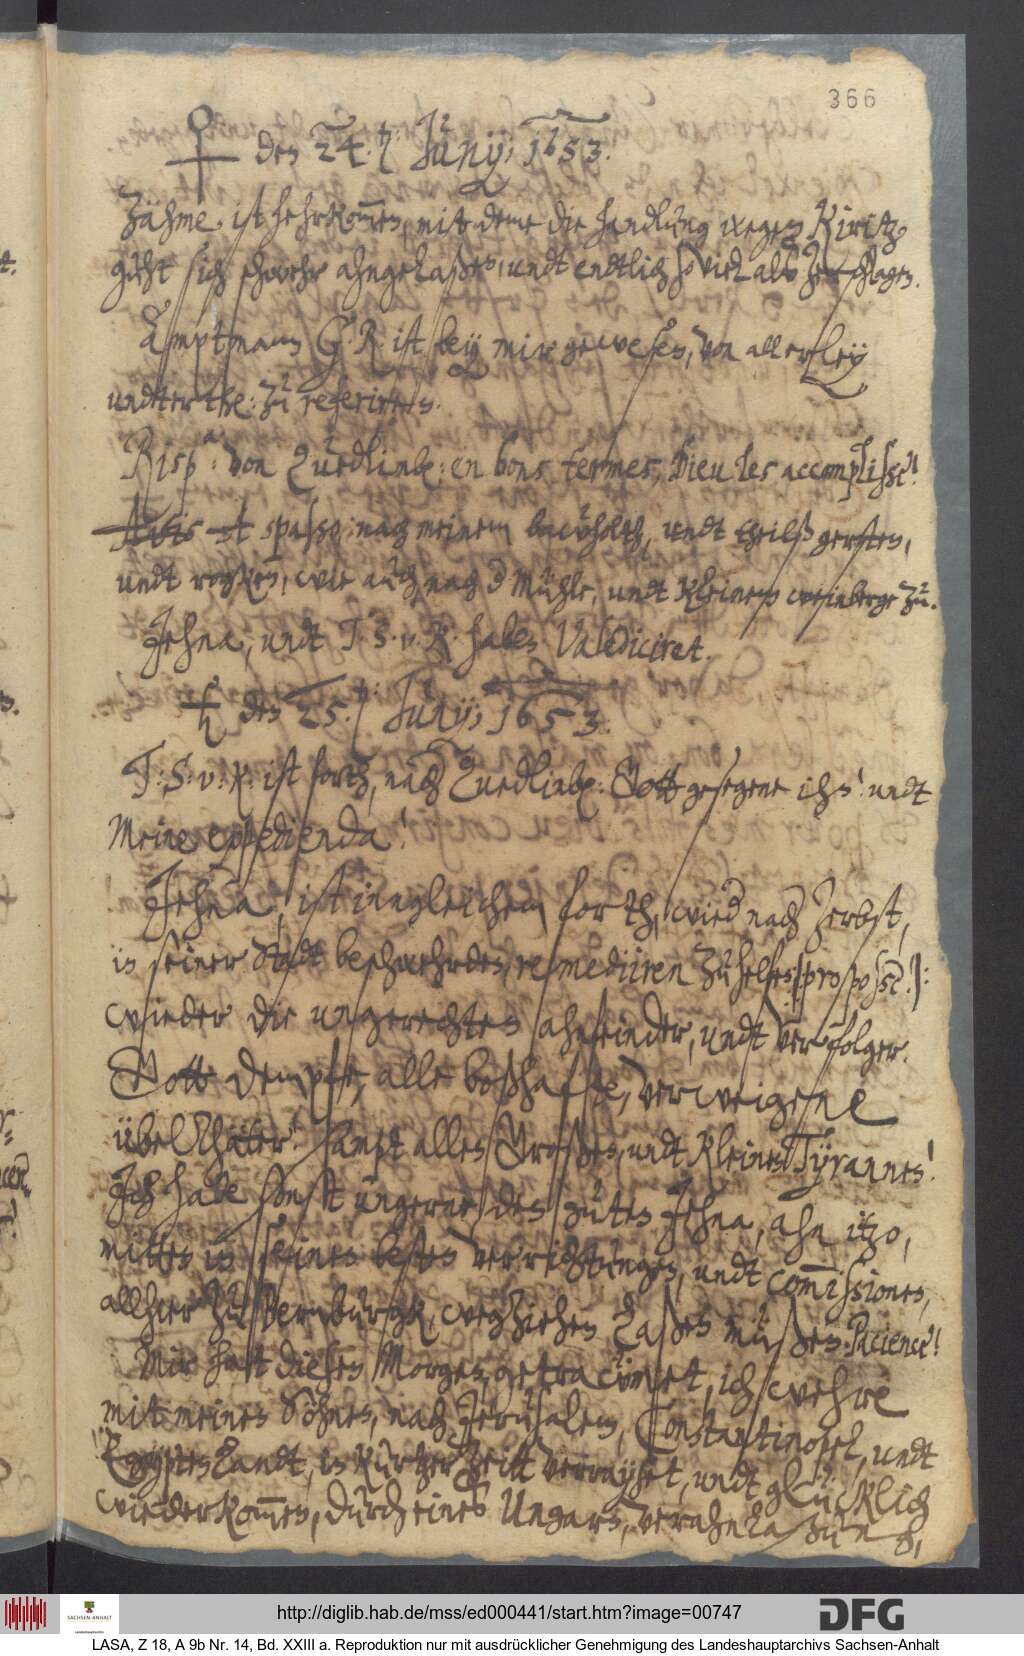 366
♀ den 24. Junÿ; 1653.
Zähme, ist herkom̅en, mit deme die handlung wegen Kiritz,
sich schwehr ahngelaßen, undt endtlich so viel als zerschlagen.
Amptmann G. R. ist beÿ mir gewesen, von allerleÿ
undterthe: zu referiren.
Risp: von Quedlinb: en bons termes, Dieu les accomplisse!
spasso: nach meinem bawholtz, undt theilß gersten,
undt rogken, wie auch, nach der Mühle, undt kleinem weinberge zu.
Jehna, undt T. S. v. R. haben Valediciret.
♄ den 25. Junÿ; 1653.
T: S: v: R: ist forth, nach Quedlinb: Gott gesegene ihn! undt
Meine expedienda!
Jehna, ist ingleichem forth, wieder nach Zerbst,
in seiner Stadt beschwehrden, remediiren zu helfen,
wieder die ungerechten ahnfeinder, undt verfolger.
Gott dempfe, alle boßhafte, verweigene
übelthäter! sampt allen Großen, undt kleinen Tÿrannen!
Ich habe sonst ungerne den guten Jehna, ahn itzo,
mitten in seinen besten verrichtungen, undt com̅issionen,
allhier zu Bernburgk, wegziehen laßen müßen. Pacience!
Mir hatt diesen Morgen, getraümet, ich wehre
mit meinen Söhnen, nach Jerusalem, Constantinopel, undt
Egÿpten Landt, in kurtzer Zeitt verrayset, undt glücklich
wiederkom̅en, durch eines Ungars, verahnlaßung,
http://diglib.hab.de/mss/ed000441/start.htm?image=00747
SACHSEN-ANHALT
DFG
LASA, Z 18, A 9b Nr. 14, Bd. XXIII a. Reproduktion nur mit ausdrücklicher Genehmigung des Landeshauptarchivs Sachsen-Anhalt